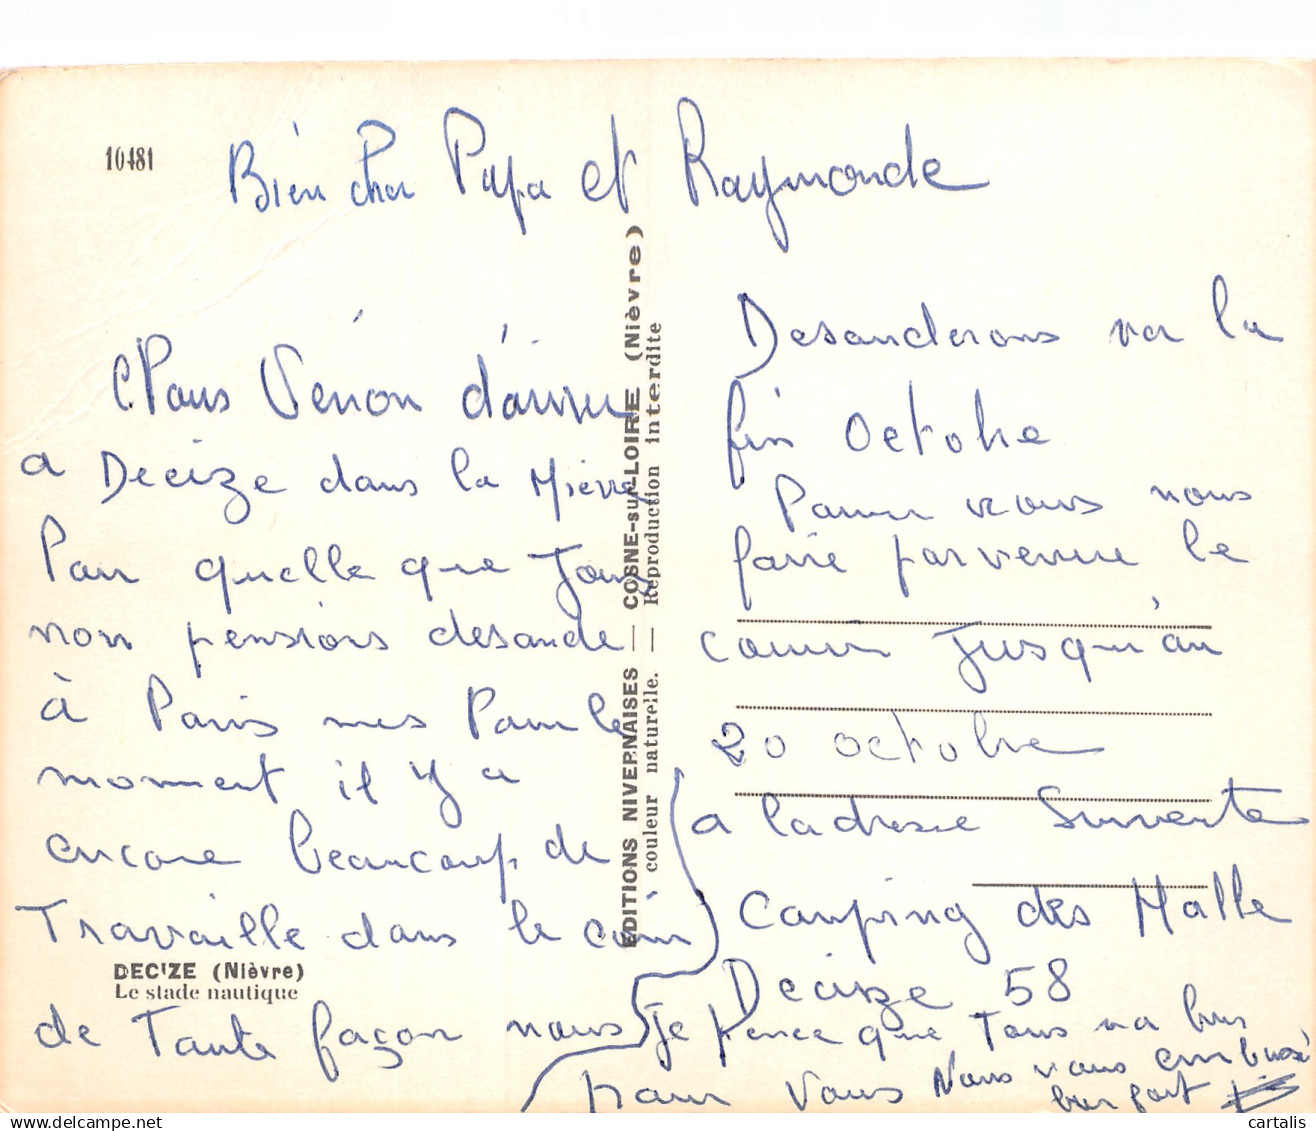 10481
Bien cher Papa et Raymonde
Nous Venon d'arriver
a Decize dans la Nièvre
Pour quelle que Jours
non pensions desande
à Paris mes Pour le
moment il y a
encore beaucoup de
Travaille dans le coin
de Toute façon nous
Desanderons ver la
fin Octobre
Pouver vous nous
faire parvenir le
courier Jusqu'au
20 octobre
a ladresse Suivente
Camping des Halle
Decize 58
Je pence que Tous va bien
pour Vous Nous vous embrasse
bien fort
EDITIONS NIVERNAISES — COSNE-sur-LOIRE (Nièvre)
couleur naturelle. — Reproduction interdite
DECIZE (Nièvre)
Le stade nautique
cartalis